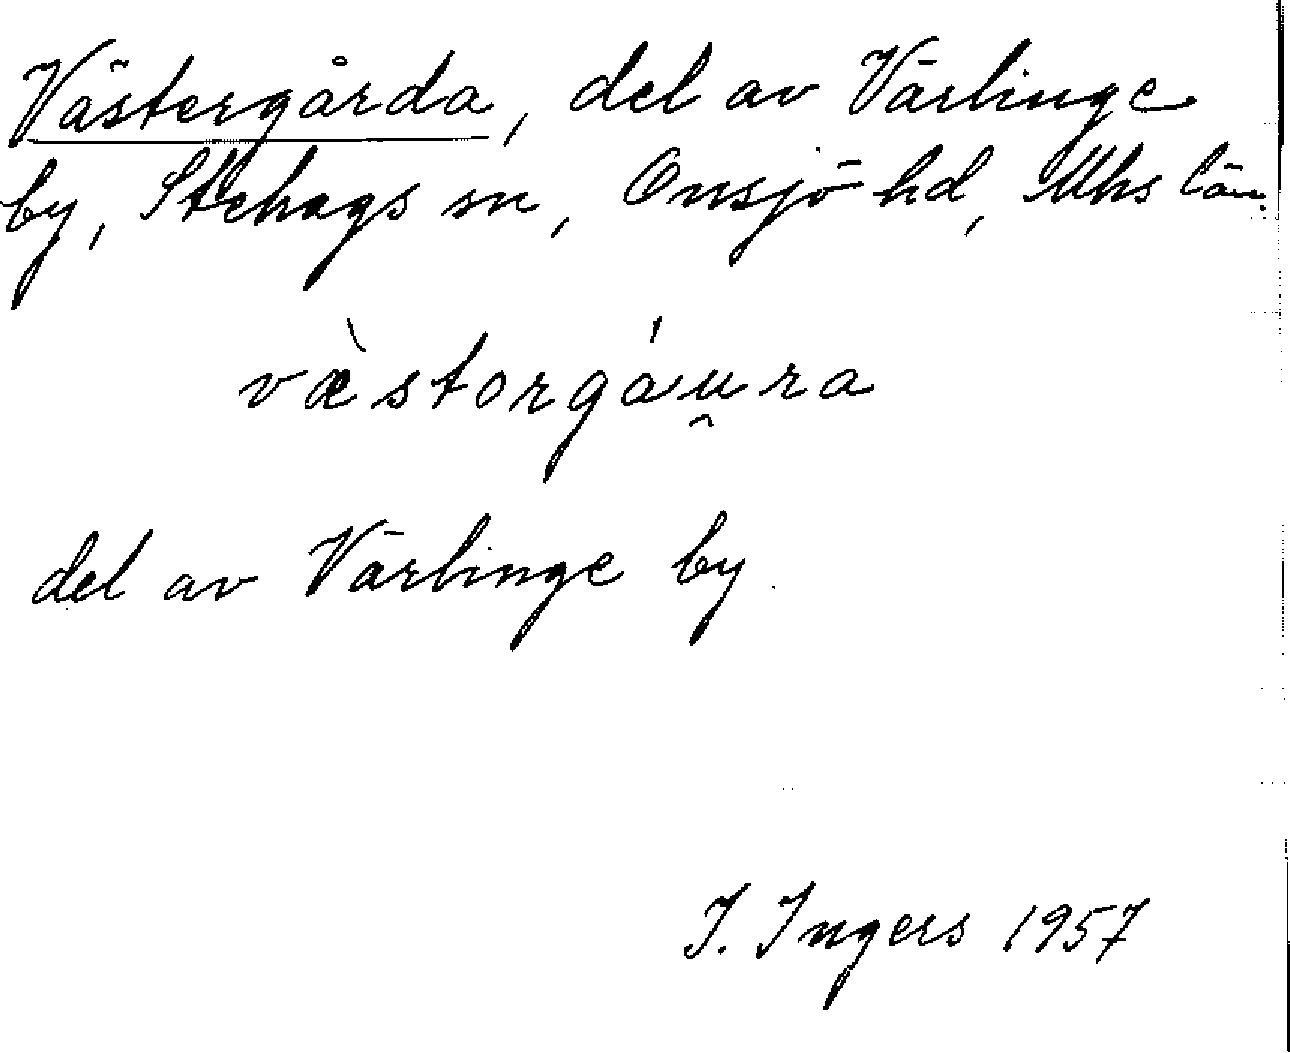 Västergårda, del av Värlinge
by, Stehags sn, Onsjö hd, Mhs län.
væ̀storgáu̯ra
del av Värlinge by.
I. Ingers 1957